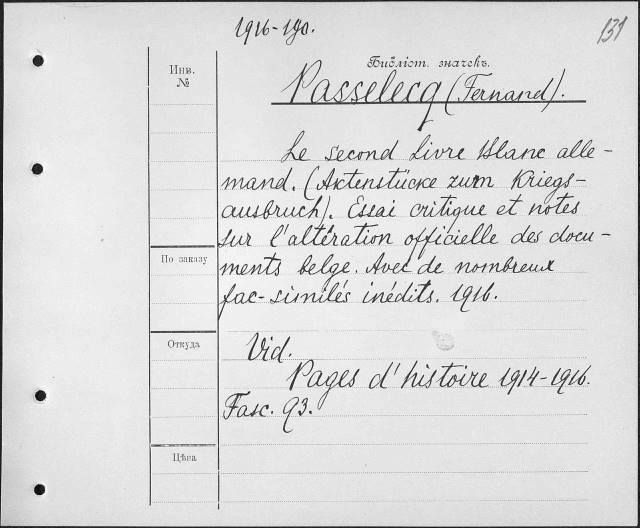 1916-190.
131
Библіот. значекъ.
Инв.
№
Passelecq (Fernand).
Le second Livre Blanc alle-
mand. (Aktenstücke zum Kriegs-
ausbruch). Essai critique et notes
sur l'altération officielle des docu-
ments belge. Avec de nombreux
fac-similés inédits. 1916.
По заказу
Откуда
Vid.
Pages d'histoire 1914-1916.
Fasc. 93.
Цѣна